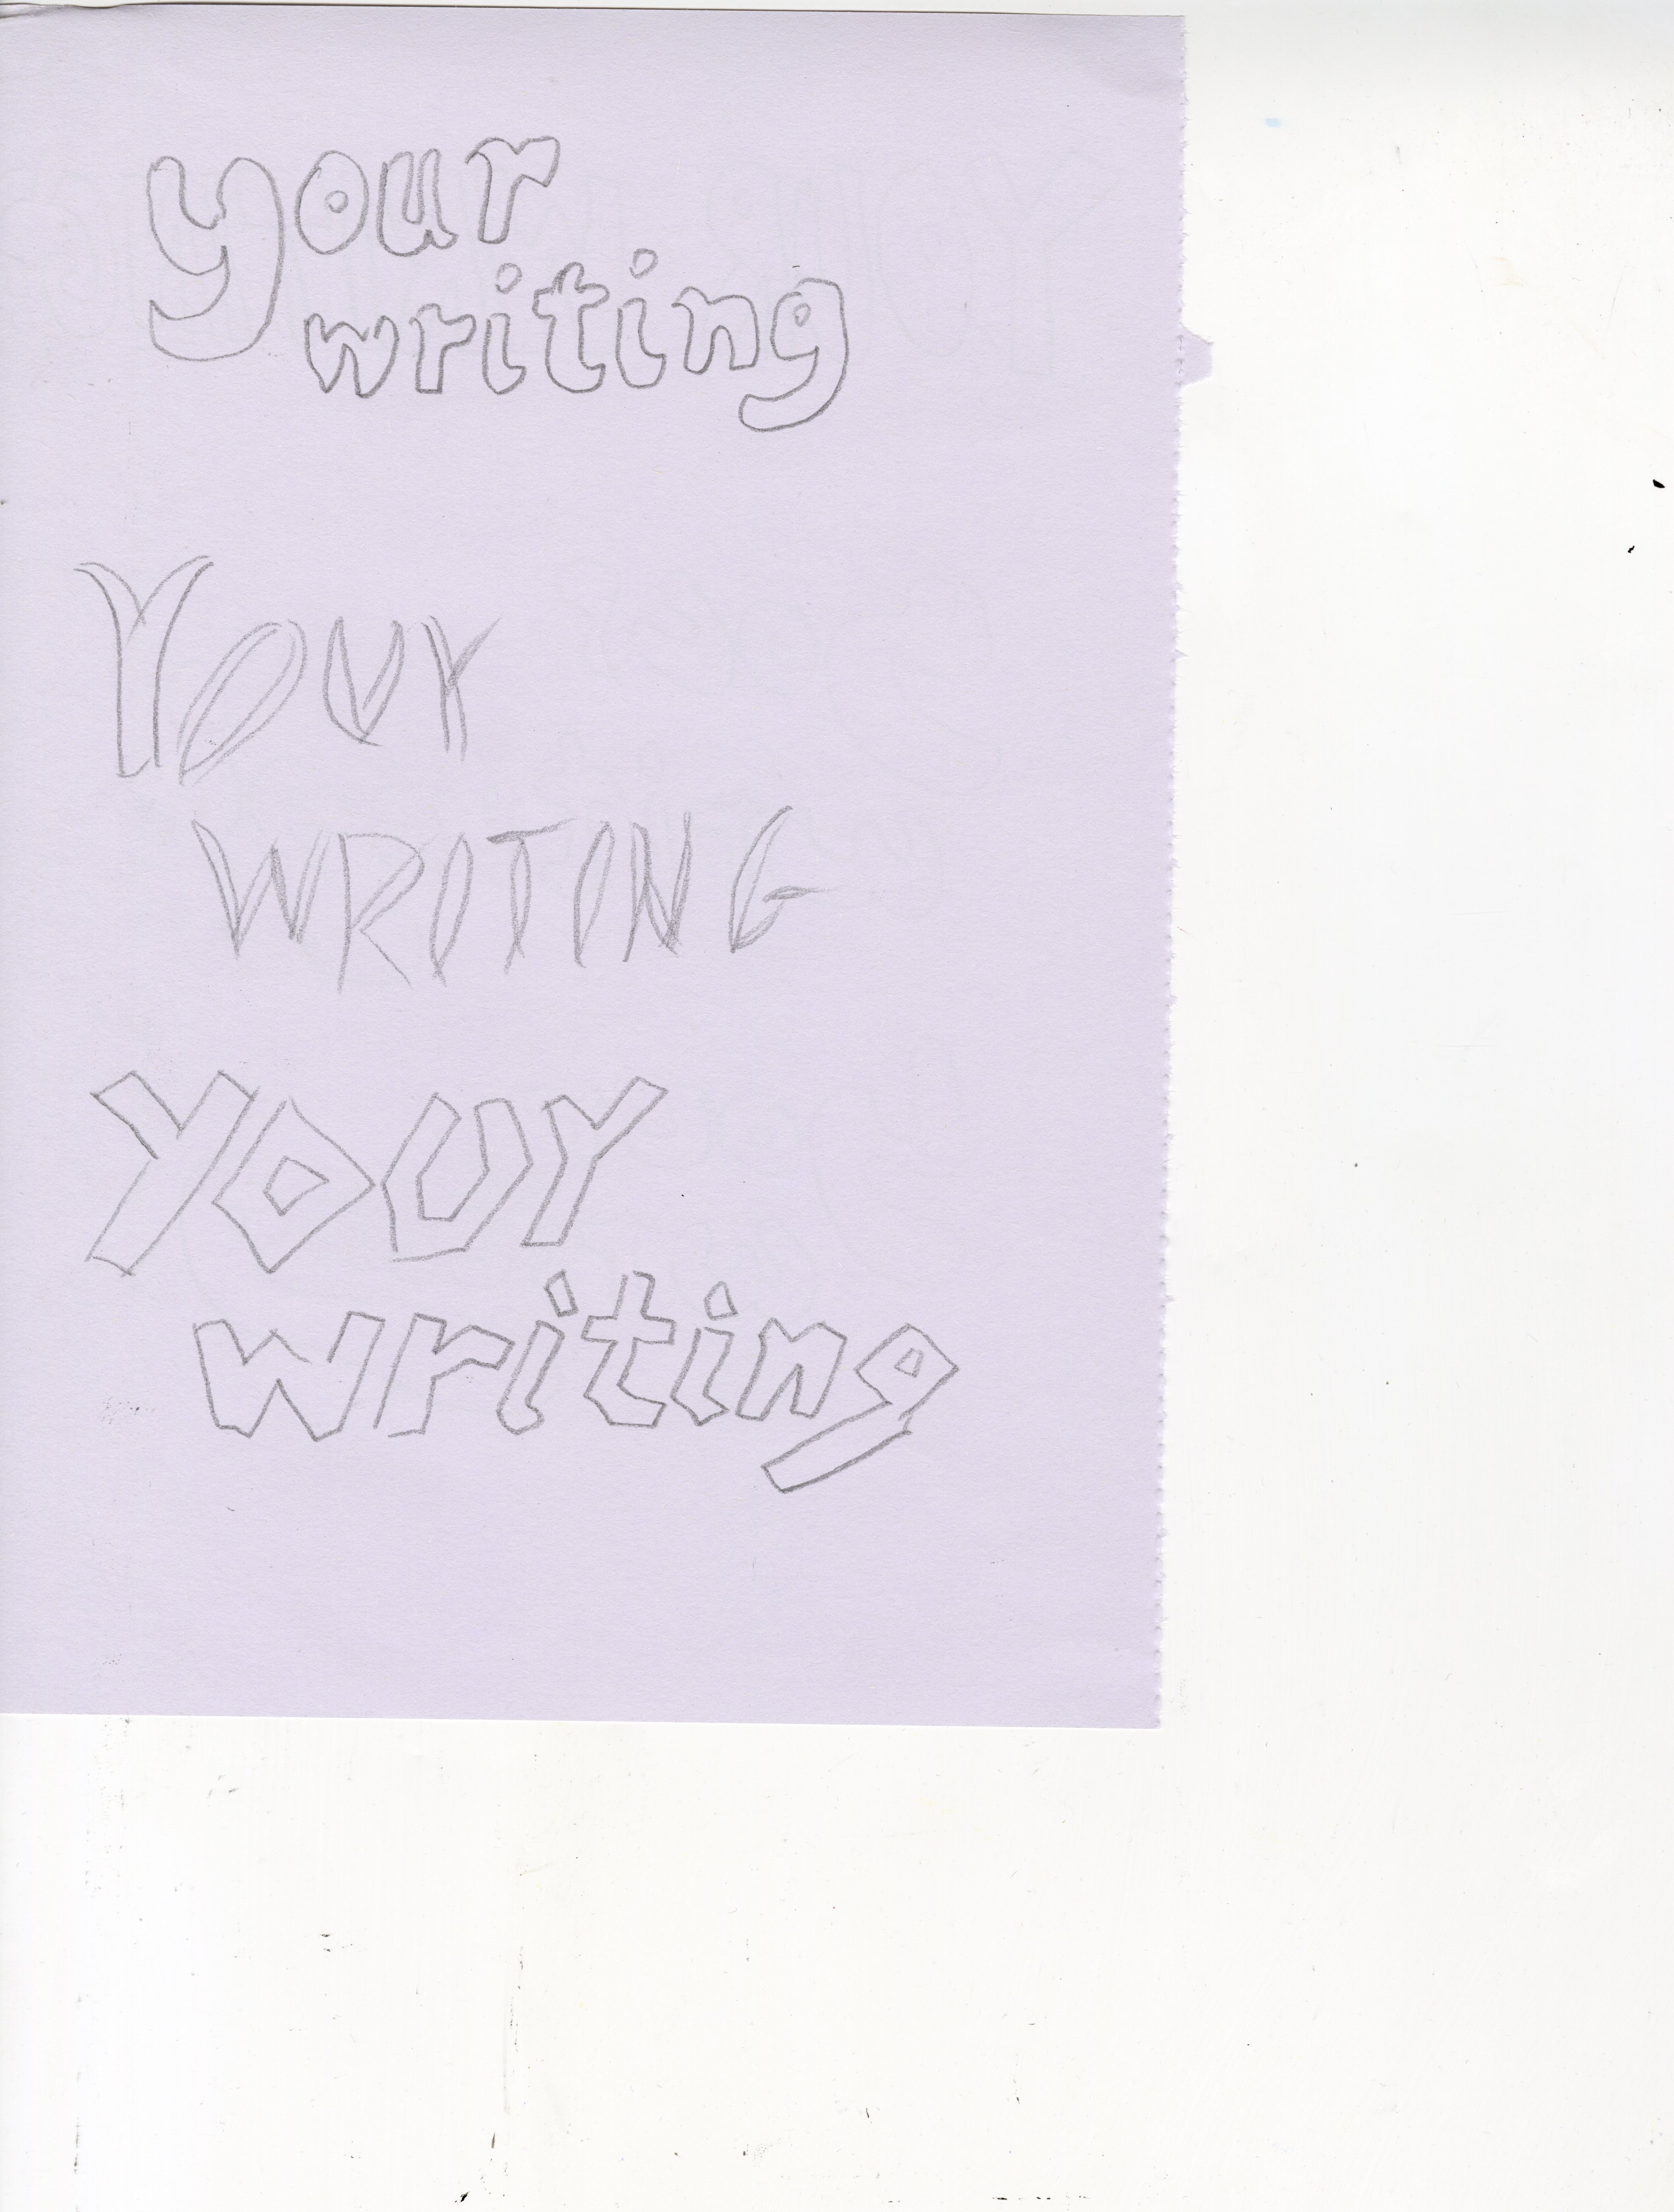 your
writing
Your
WRITING
your
writing